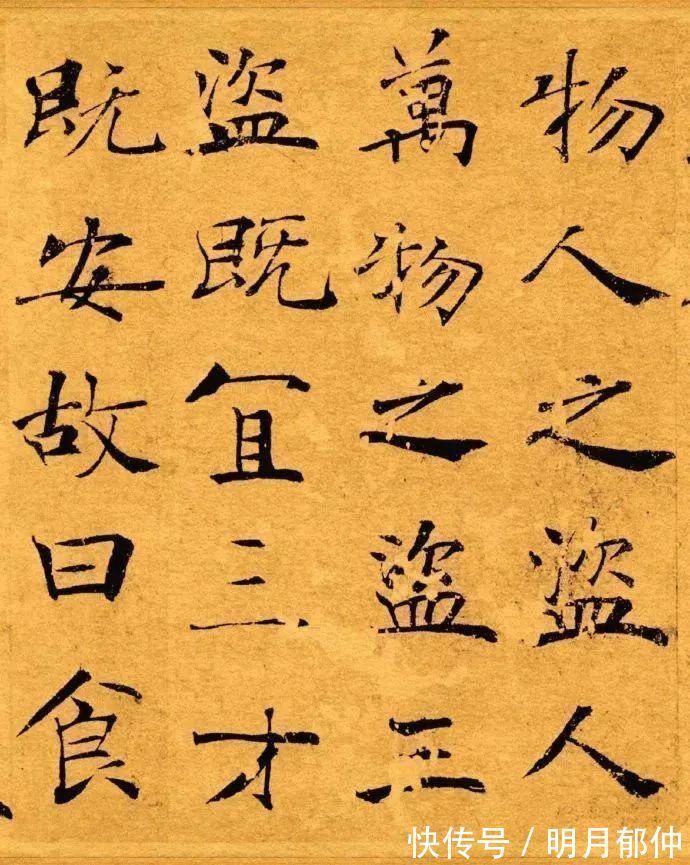 物人之盜人
萬物之盜三
盜既宜三才
既安故曰食
快传号 / 明月郁仲